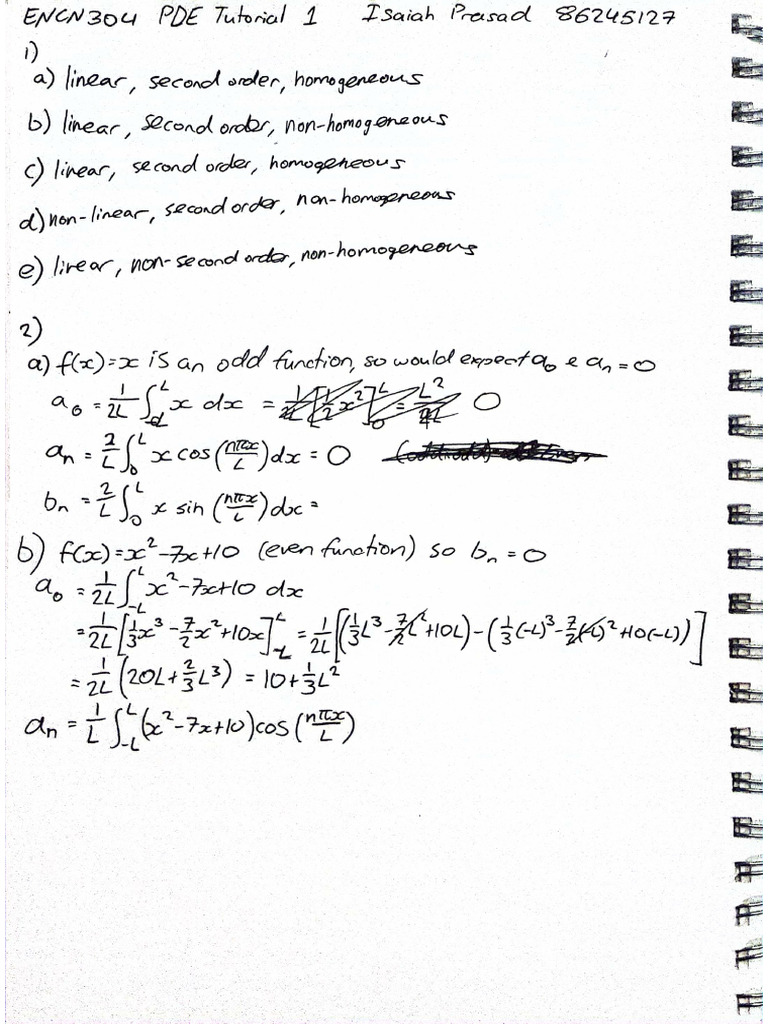 ENCN304 PDE Tutorial 1 Isaiah Prasad 86245127
1)
a) linear, second order, homogeneous
b) linear, second order, non-homogeneous
c) linear, second order, homogeneous
d) non-linear, second order, non-homogeneous
e) linear, non-second order, non-homogeneous
2)
a) f(x)=x is an odd function, so would expect a₀ & aₙ=0
a₀ = 1/2L ∫ᴸ x dx = 1/2L [1/2 x²]₀ᴸ = L²/4L 0
aₙ = 2/L ∫₀ᴸ x cos(nπx/L)dx = 0
bₙ = 2/L ∫₀ᴸ x sin(nπx/L)dx =
b) f(x)=x²-7x+10 (even function) so bₙ=0
a₀ = 1/2L ∫₋Lᴸ x²-7x+10 dx
= 1/2L [1/3x³ - 7/2x² + 10x]₋Lᴸ = 1/2L [(1/3L³ - 7/2L² + 10L) - (1/3(-L)³ - 7/2(-L)² + 10(-L))]
= 1/2L (20L + 2/3L³) = 10 + 1/3L²
aₙ = 1/L ∫₋Lᴸ (x²-7x+10)cos(nπx/L)